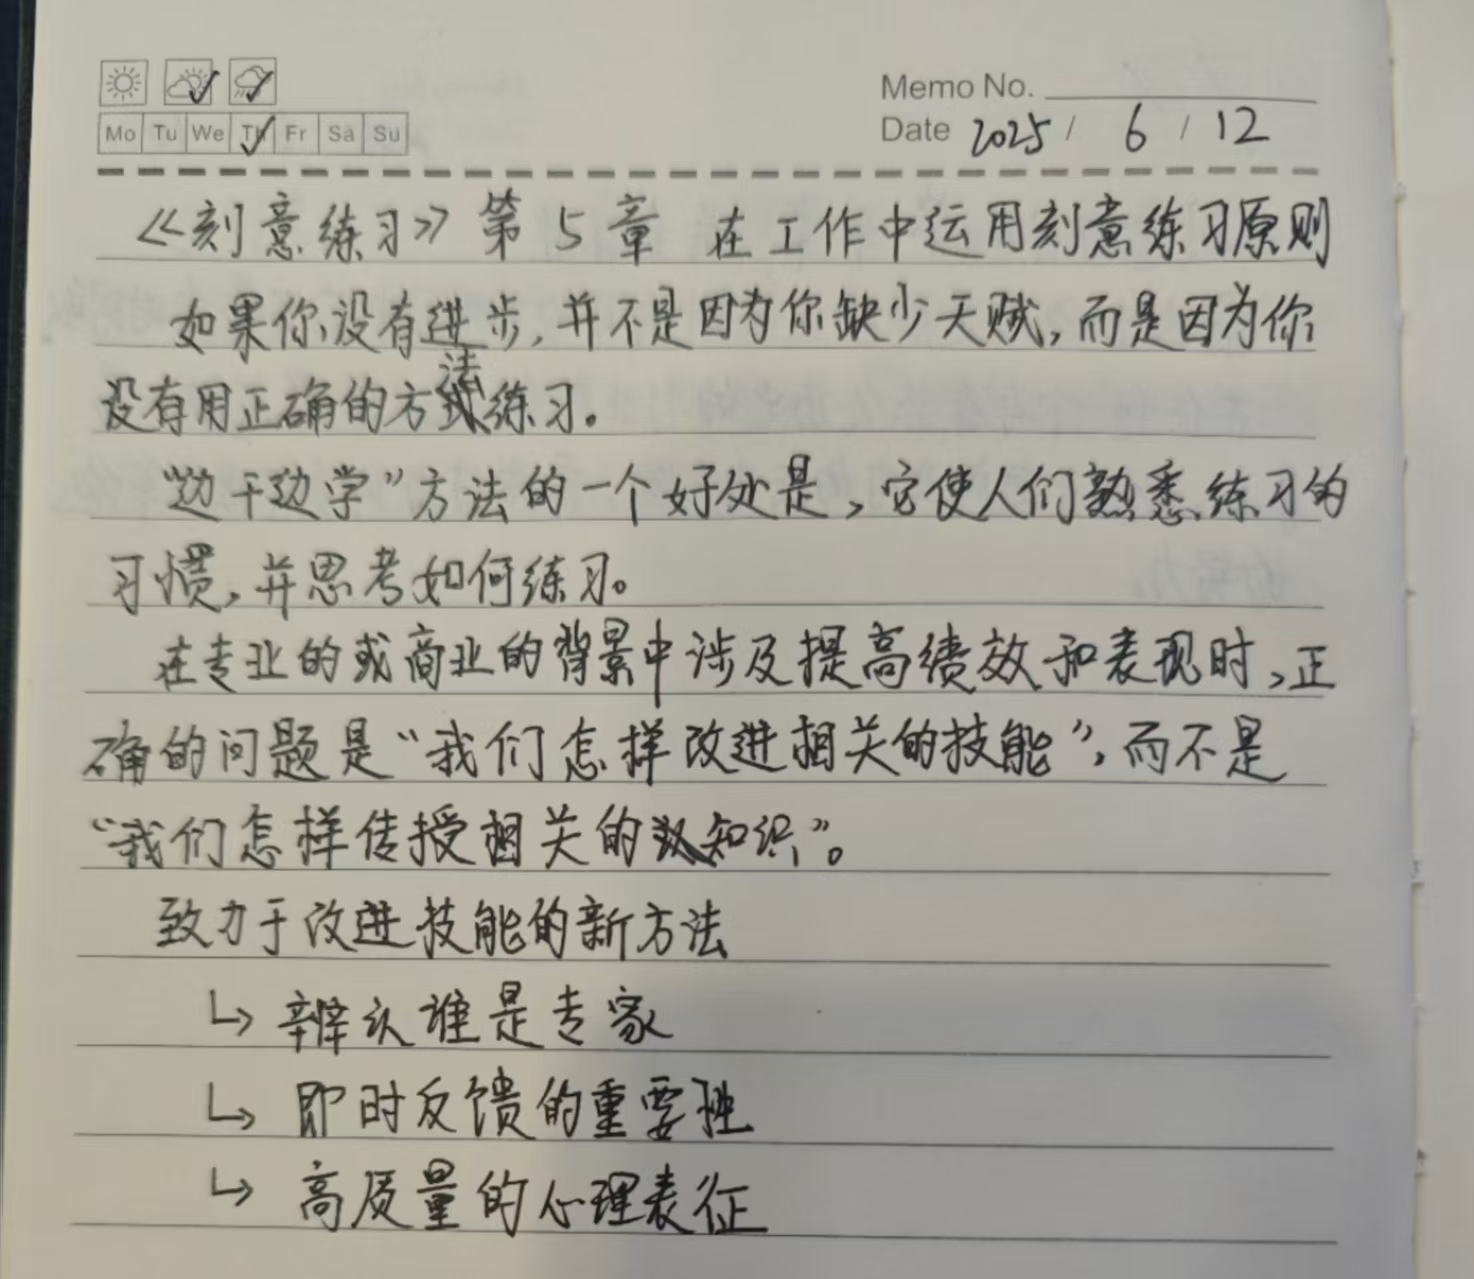 Memo No.
Mo Tu We Th Fr Sa Su
Date 2025 / 6 / 12
《刻意练习》第5章 在工作中运用刻意练习原则
如果你没有进步,并不是因为你缺少天赋,而是因为你
没有用正确的方法练习。
“边干边学”方法的一个好处是,它使人们熟悉练习的
习惯,并思考如何练习。
在专业的或商业的背景中涉及提高绩效和表现时,正
确的问题是“我们怎样改进相关的技能”,而不是
“我们怎样传授相关的知识”。
致力于改进技能的新方法
↳ 辨认谁是专家
↳ 即时反馈的重要性
↳ 高质量的心理表征